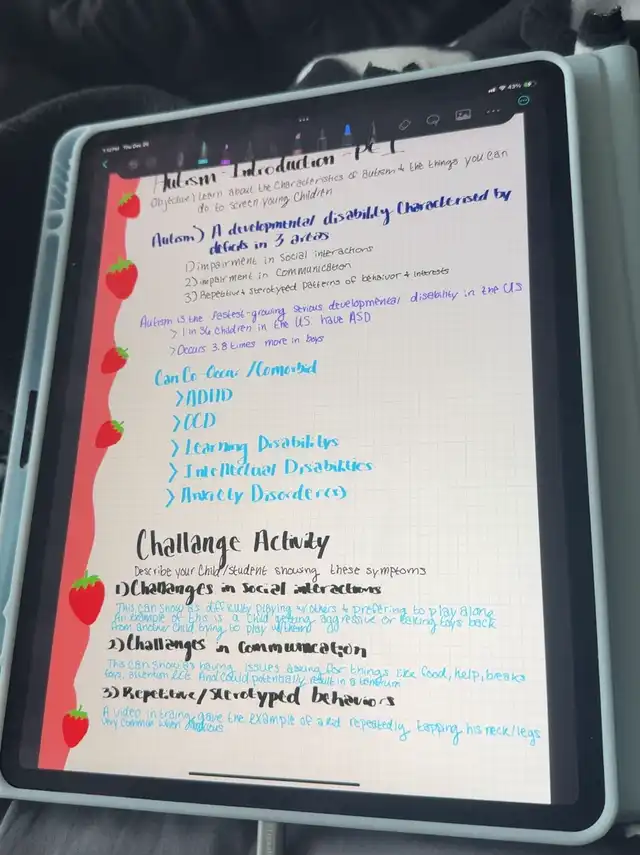 1:12 PM Thu Dec 26
43%
Autism - Introduction - PC 1
Objective) Learn about the characteristics of Autism & the things you can
do to screen young children
Autism) A developmental disability characterised by
deficits in 3 areas
1) impairment in Social interactions
2) impairment in Communication
3) Repetitive & sterotyped patterns of behavior & interests
Autism is the fastest-growing serious developmental disability in the US
> 1 in 36 children in the US have ASD
> Occurs 3.8 times more in boys
Can Co-Occur /Comorbid
> ADHD
> OCD
> Learning Disabilitys
> Intellectual Disabilities
> Anxiety Disorder(s)
Challange Activity
Describe your Child/Student showing these symptoms
1) Challanges in Social interactions
This can show as difficulty playing w/others & prefering to play alone
An example of this is a child getting aggressive or taking toys back
from another child trying to play w/them
2) Challanges in Communication
This can show as having issues asking for things like food, help, breaks
toys, attention etc. And could potentially result in a tantrum
3) Repetitive/Sterotyped behaviors
A video in training gave the example of a kid repeatedly tapping his neck/legs
very common when